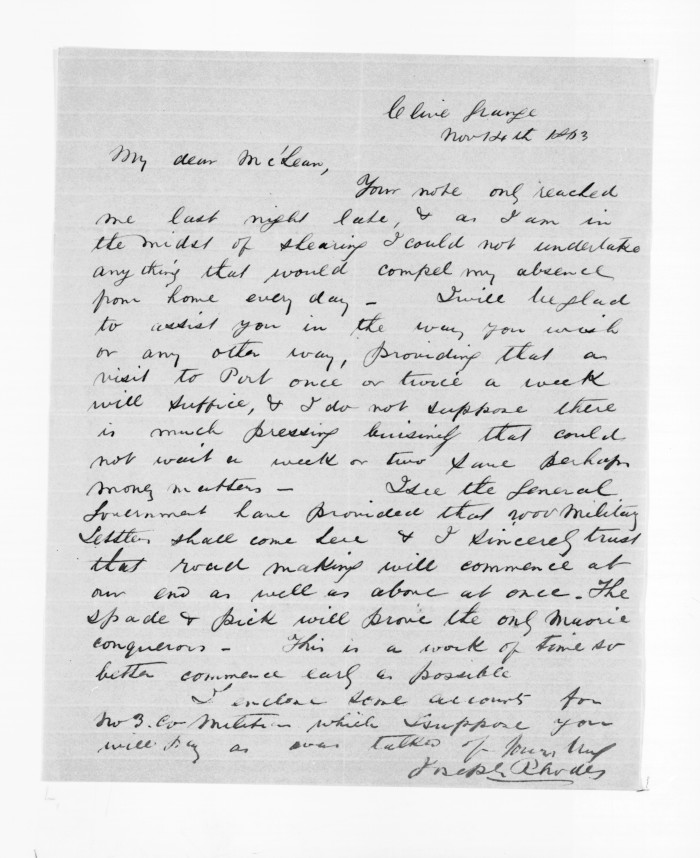 Clive Grange
Nov 14th 1863
My dear McLean,
Your note only reached
me last night late, & as I am in
the midst of shearing I could not undertake
anything that would compel my absence
from home every day - I will be glad
to assist you in the way you wish
or any other way, providing that a
visit to Port once or twice a week
will suffice, & I do not suppose there
is much pressing that could
not wait a week or two save perhaps
money matters - I see the General
Government have provided that Military
Settlers shall come here & I sincerely trust
that road making will commence at
our end as well as above at once. The
spade & pick will prove the only Maorie
conquerors - This is a work of time so
better commence early as possible
I enclose some accounts for
No 3. Co Militia which I suppose you
will pay as was talked of Yours truly
Joseph Rhodes